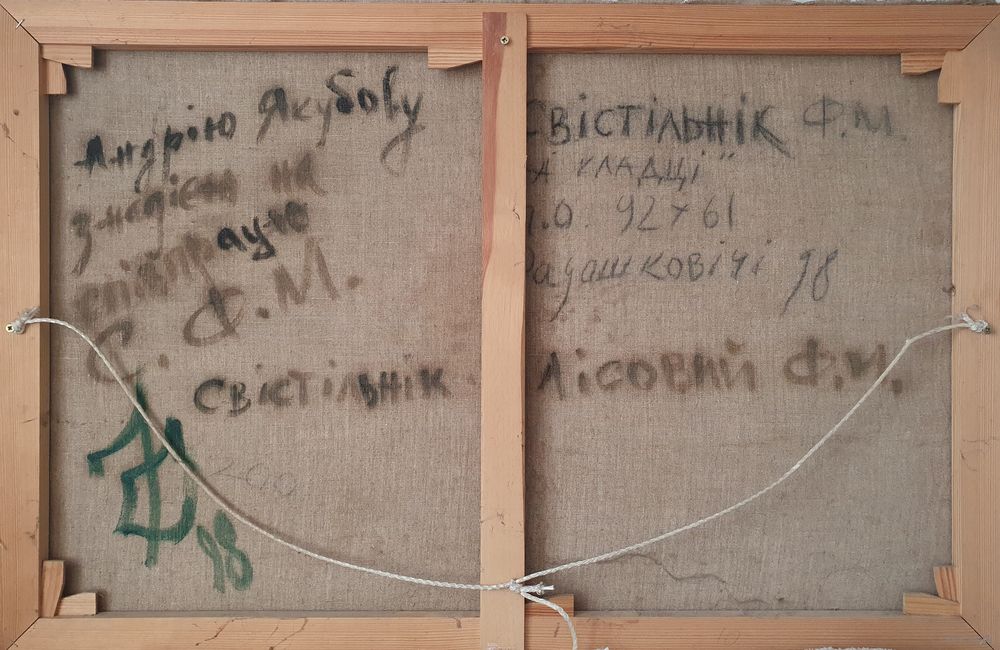 Андрію Якубову
з надією на
співпрацю
С. Ф. М.
СВІСТІЛЬНІК
200
98
СВІСТІЛЬНІК Ф.М.
КЛАДЦІ"
92 х 61
Радашковічі 98
ЛІСОВИЙ Ф.М.